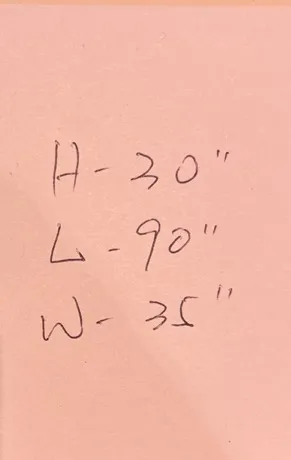 H - 30"
L - 90"
W - 35"